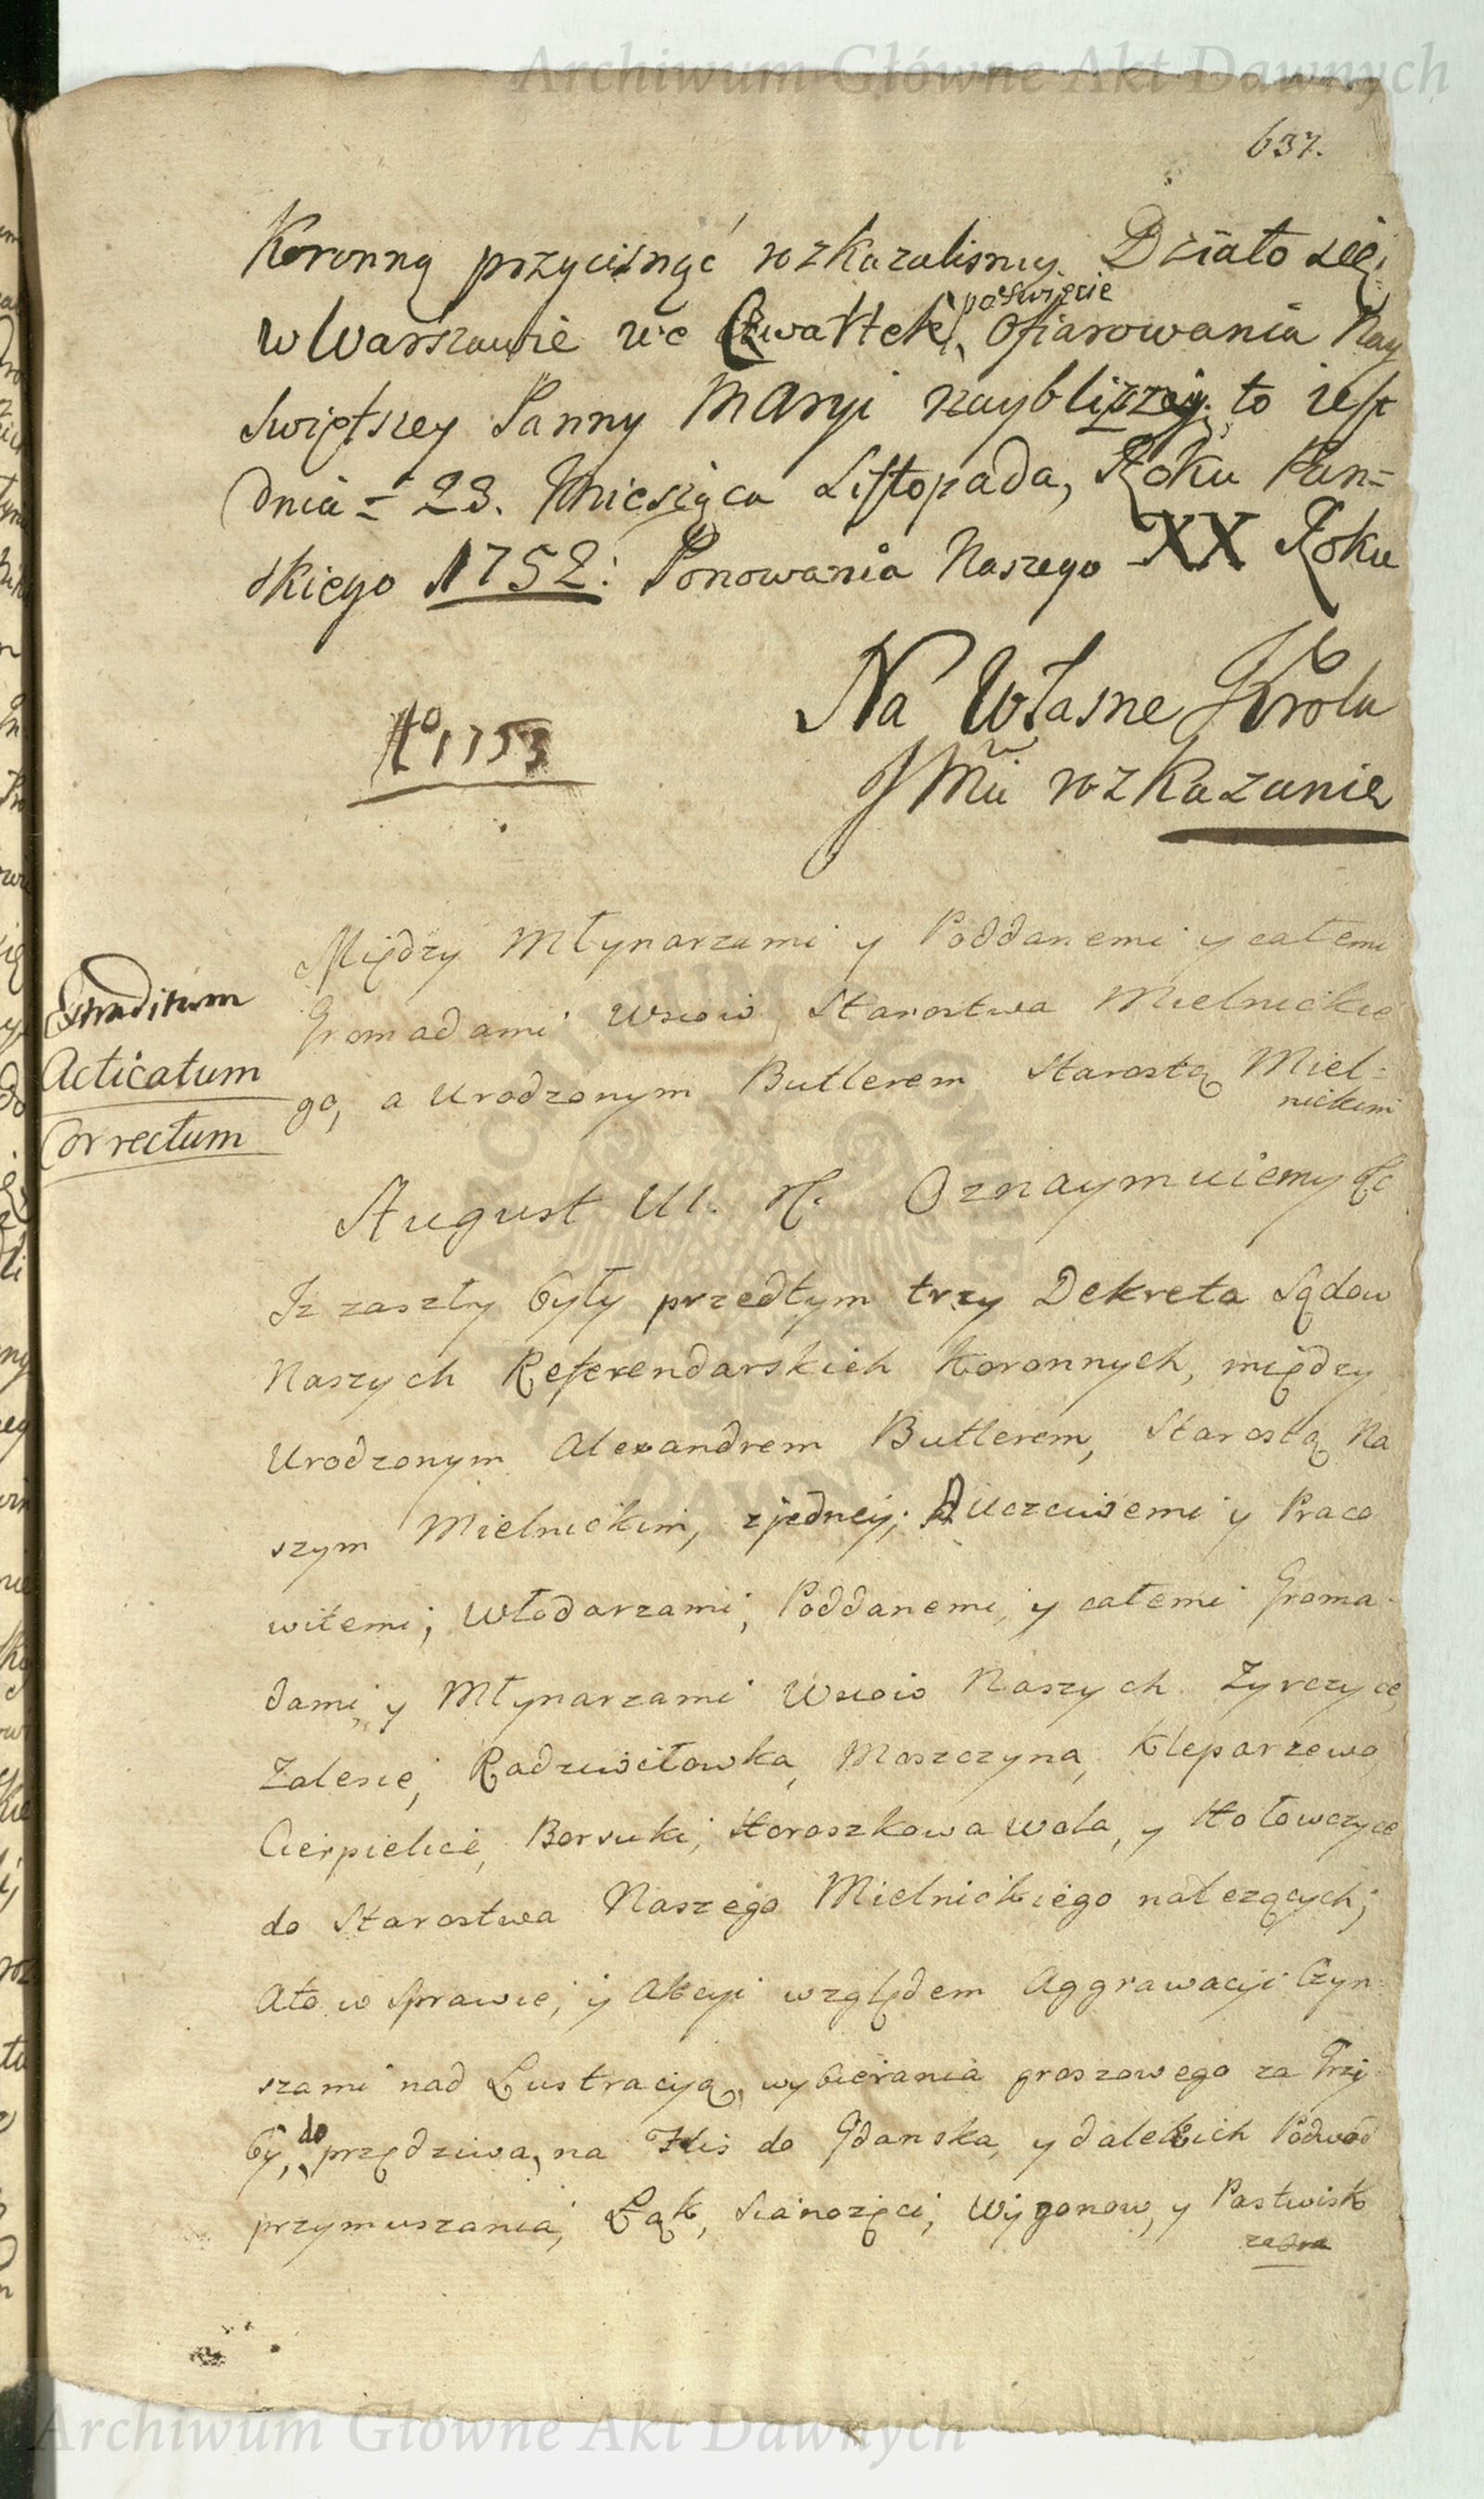 Archiwum Główne Akt Dawnych
637.
Koronną przycisnąć rozkazalismy. Działo się
w Warszawie we Czwartek, po Swięcie Ofiarowania Nay
Swiętszey Panny Maryi naybliższy, to iest
dnia = 23. Miesiąca Listopada, Roku Pan=
skiego 1752: Ponowania Naszego XX Roku
Na Własne Krola
JMci rozkazanie
Ao 1753
Między Młynarzami y Poddanemi y całemi
Gromadami Wsiow Starostwa Mielnickie
go, a Urodzonym Butlerem Starostą Miel=
nickim
Extraditum
Acticatum
Correctum
August III. K. Oznaymuiemy &c
Iz zaszły były przedtym trzy Dekreta Sądow
Naszych Referendarskich Koronnych, między
Urodzonym Alexandrem Butlerem, Starostą Na
szym Mielnickim, z jedney; A Uczciwemi y Praco
witemi; Włodarzami, Poddanemi, y całemi Groma-
dami, y Młynarzami Wsiow Naszych Zyrczyce,
Zalesie, Radziwiłowka, Moszczyna, Kleparzewo,
Cierpielice, Borsuki, Horoszkowa Wola, y Hołowczyce
do Starostwa Naszego Mielnickiego należących;
Ato w Sprawie, y Akcyi względem Aggrawacyi Czyn-
szami nad Lustracyą, wybierania groszowego za Grzy-
by, do przędziwa, na Flis do Gdanska, y dalekich Podwod
przymuszania, Łąk, Sianożęci, Wygonow, y Pastwisk
zabra
Archiwum Główne Akt Dawnych